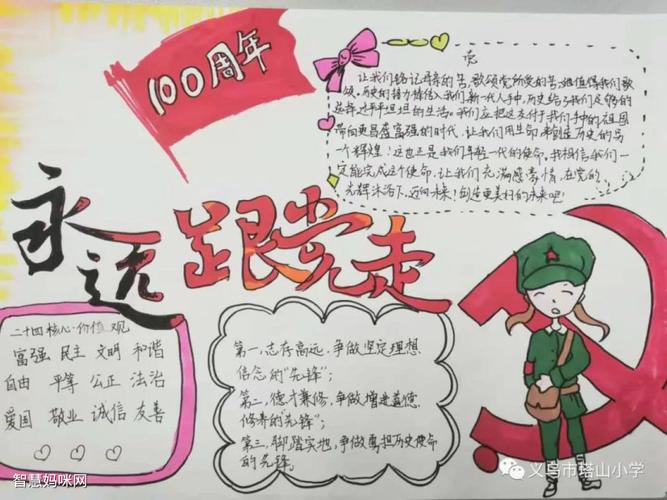 100周年
党
让我们铭记诗韩的苦,歌颂党所受的苦,她值得我们歌
颂。历史的接力棒传入我们新一代人手中,历史给予我们足够的
选择过平平坦坦的生活。我们应把这支付于我们手中的祖国
带向更昌盛富强的时代,让我们用生命来创造历史的另
一个辉煌!这也正是我们年轻一代的使命。我相信我们一
定能完成这个使命,让我们充满感豪情,在党的
光辉沐浴下,迈向未来!创造更美好的未来吧!
永远跟党走
二十四核心·价值观
富强 民主 文明 和谐
自由 平等 公正 法治
爱国 敬业 诚信 友善
第一,志存高远,争做坚定理想
信念的"先锋";
第二,德才兼修,争做增进道德
修养的"先锋";
第三,脚踏实地,争做勇担历史使命
的先锋。
智慧妈咪网
义乌市塔山小学